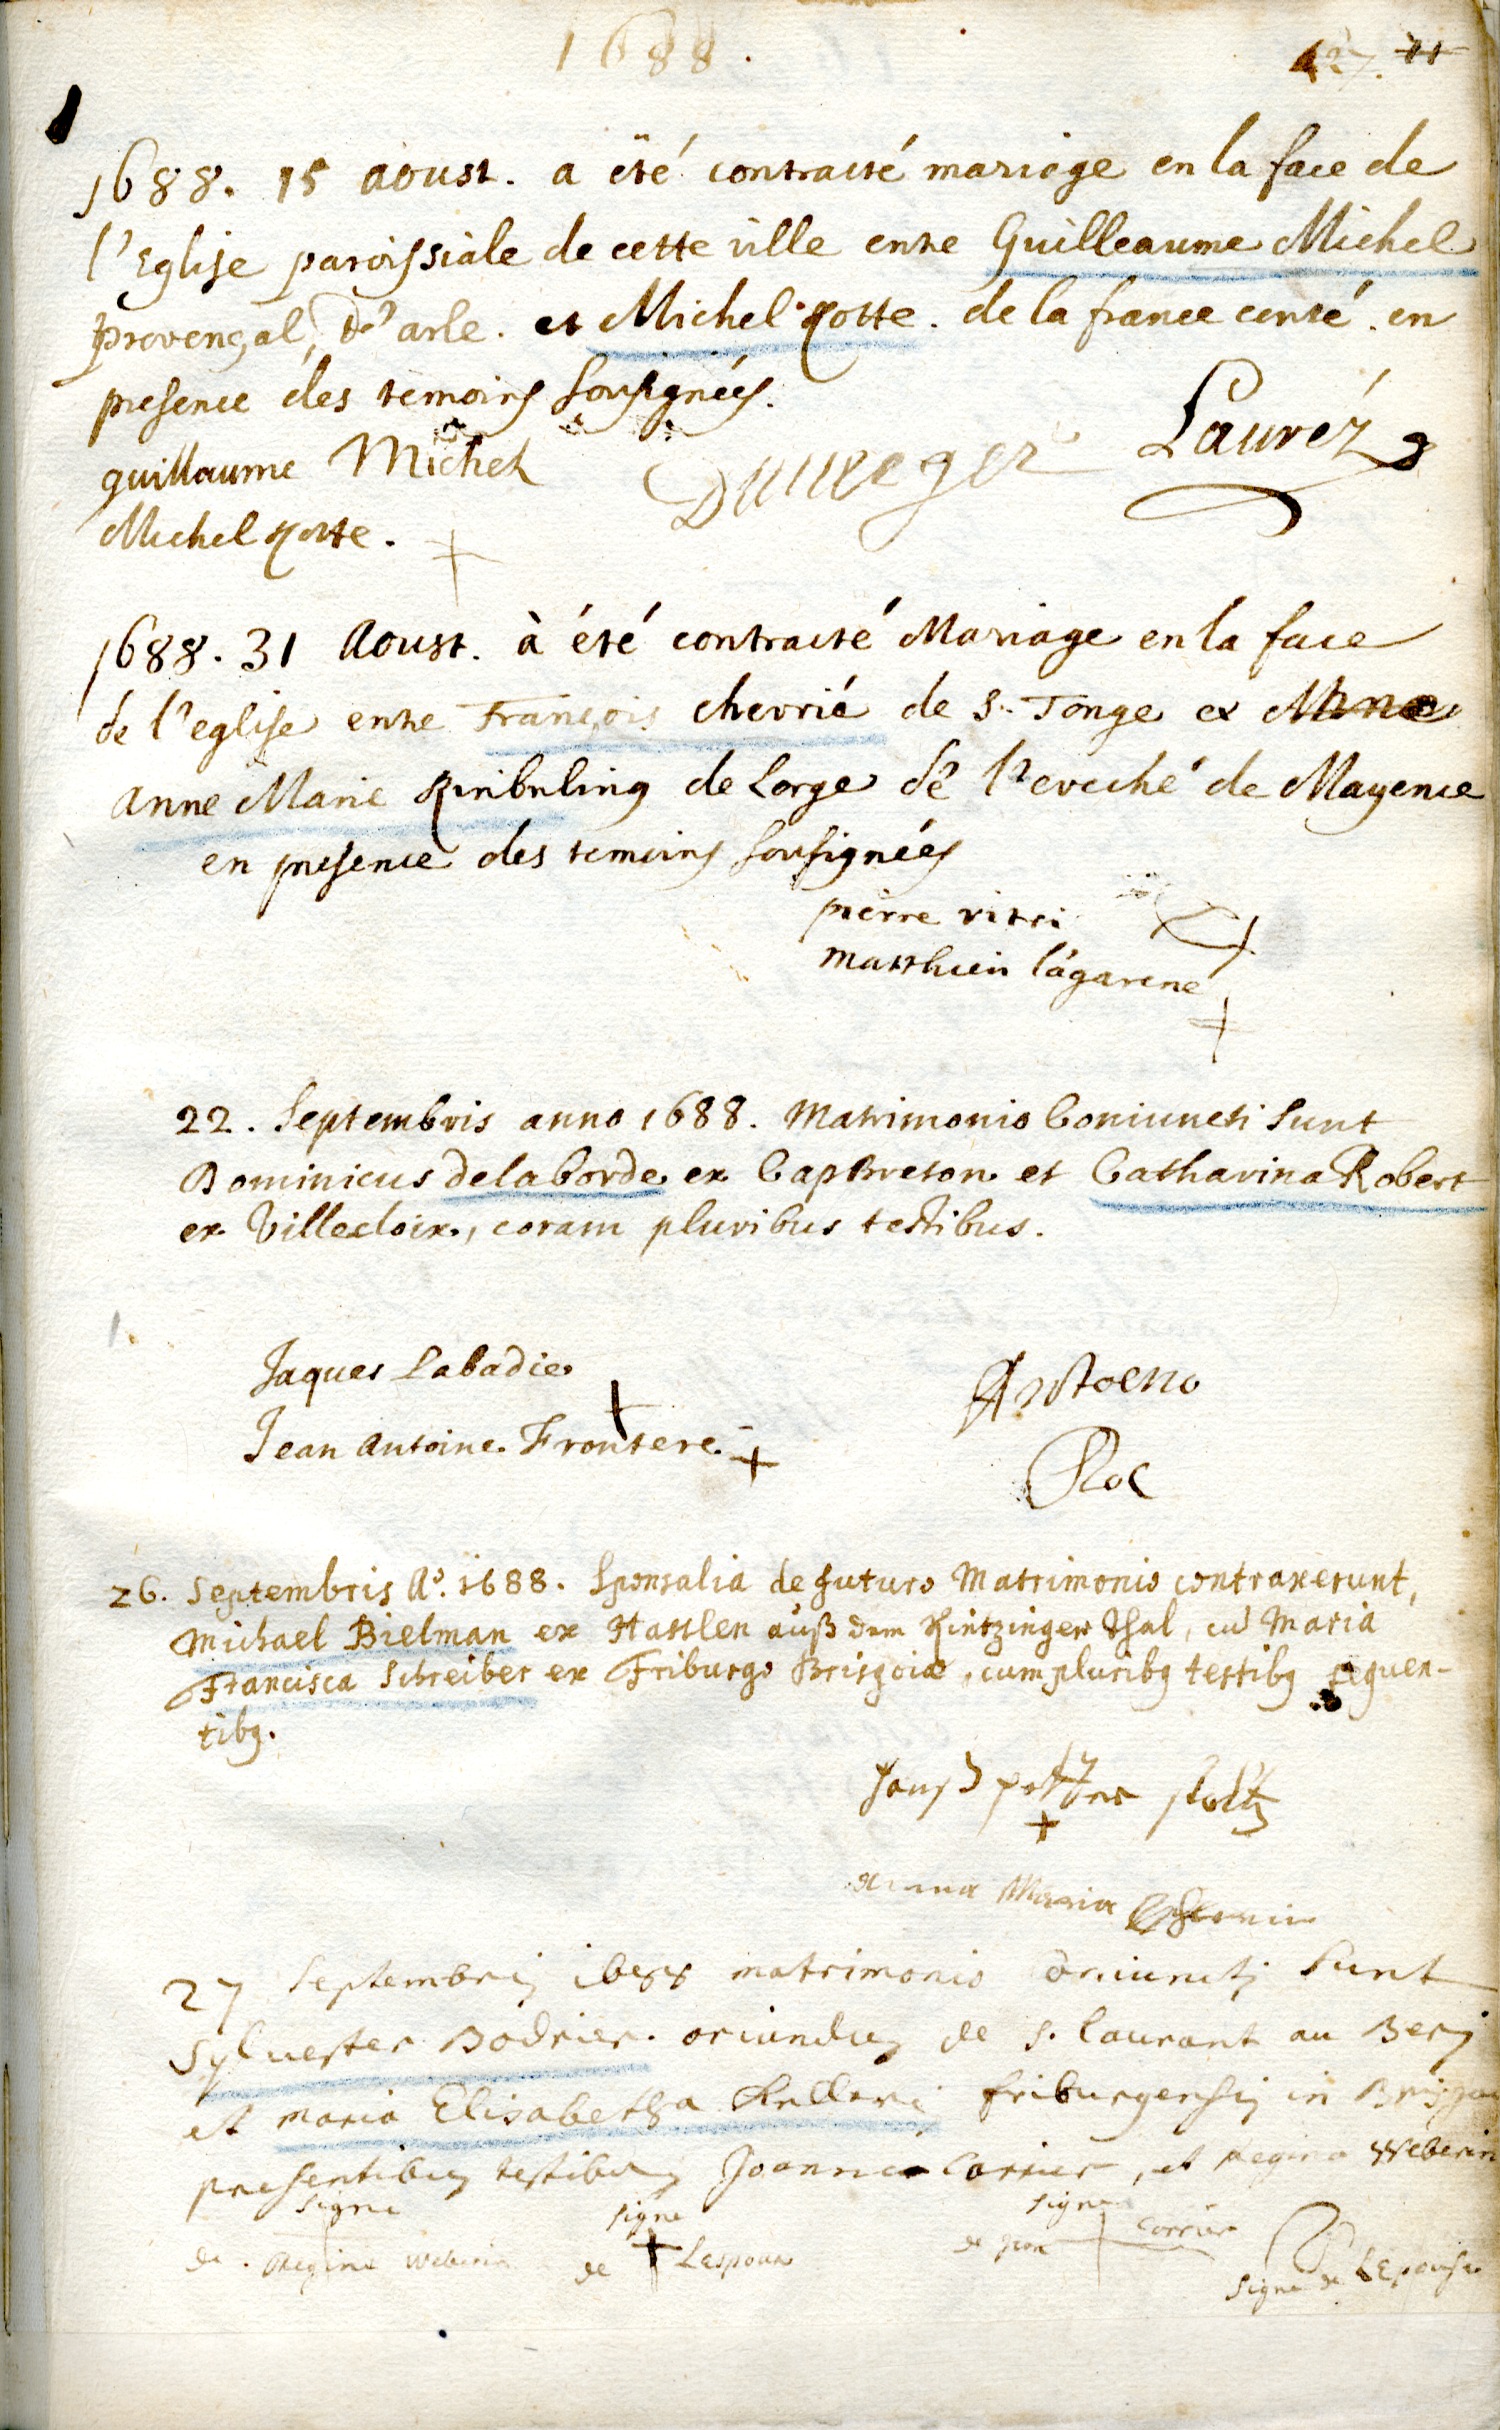 1688.
127. 11
1688. 15 aoust. a été contracté mariage en la face de
l'Eglise paroissiale de cette ville entre Guilleaume Michel
provençal, d'arle. et Michel Rotte. de la france conté. en
presence des temoins soussignées.
guillaume Michel
Lauréz
Michel Rotte.
1688. 31 Aoust. à été contracté Mariage en la face
de l'eglise entre François chevrié de S. Tonge et
Anne Marie de Lorge de l'eveché de Mayence
en presence des temoins sousignées
pierre vitri
matthieu lagarene
22. Septembris anno 1688. Matrimonio Coniuncti sunt
Dominicus delaborde ex CapBreton et Catharina Robert
ex Villecloix, coram pluribus testibus.
Jaques Labadie
Jean Antoine Frontere
Antoeno
Roc
26. Septembris Ao. 1688. Sponsalia de futuro Matrimonio contraxerunt,
Michael Bielman ex Haslen auß dem Kintzinger Thal, cu Maria
Francisca Schreiber ex Friburgo Brisgoiæ, cum pluribq testibq sequen-
tibq.
anna Maria
27 Septembris 1688 matrimonio coniuncti sunt
Sylvester Bodrier. oriundus de S. laurant au Bery
et maria Elisabetha Kelleri friburgensis in
presentibus testibus Joanne Corrier, et Regina Weberin
signe signe signe
de Regina Weberin de Lespoux de Jean Corrier
signe de LEpouse